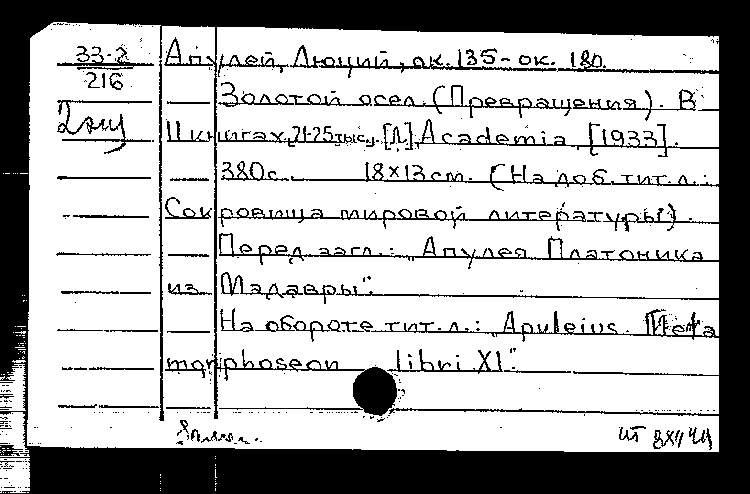 33-2
216
2 экз
Апулей, Люций, ок. 135 – ок. 180.
Золотой осел. (Превращения). В
11 книгах, 21-25 тыс. [Л], Academia, [1933].
380 с. 18×13 см. (На доб. тит. л.:
Сокровища мировой литературы).
Перед загл.: „Апулея Платоника
из Мадавры".
На обороте тит. л.: „Apuleius. Meta
morphoseon libri XI".